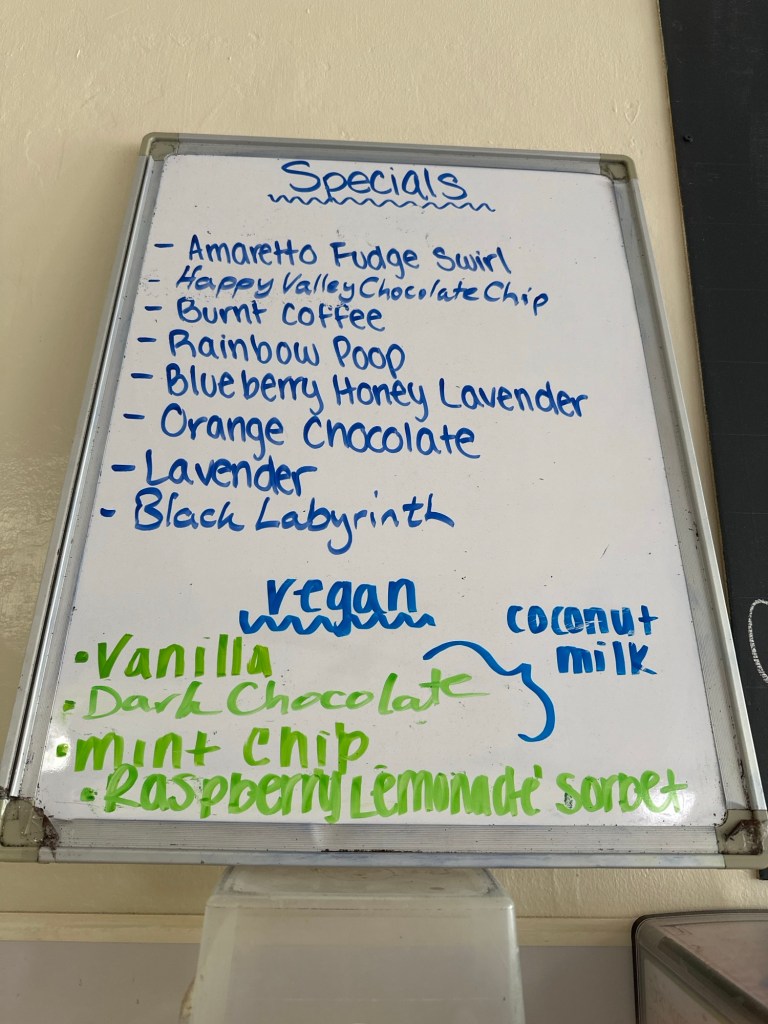 Specials
- Amaretto Fudge Swirl
- Happy Valley Chocolate Chip
- Burnt Coffee
- Rainbow Poop
- Blueberry Honey Lavender
- Orange Chocolate
- Lavender
- Black Labyrinth
vegan
coconut
milk
• Vanilla
• Dark Chocolate
• mint chip
• Raspberry Lemonade sorbet